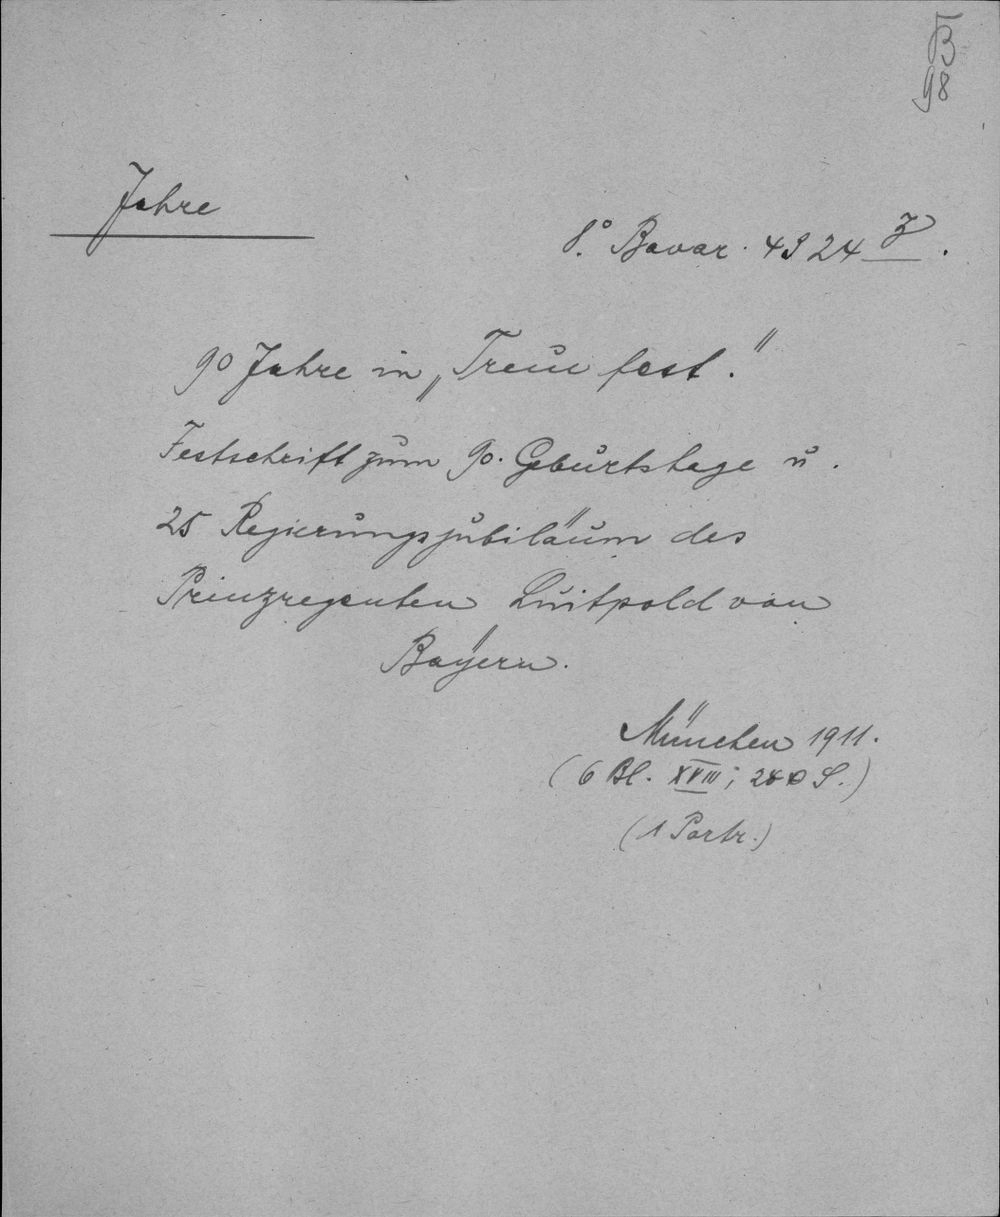 B
98
Jahre
8.° Bavar. 4924 z.
90 Jahre in „Treue fest."
Festschrift zum 90. Geburtstage u.
25 Regierungsjubiläum des
Prinzregenten Luitpold von
Bayern.
München 1911.
(6 Bl. XVIII; 280 S.)
(1 Portr.)